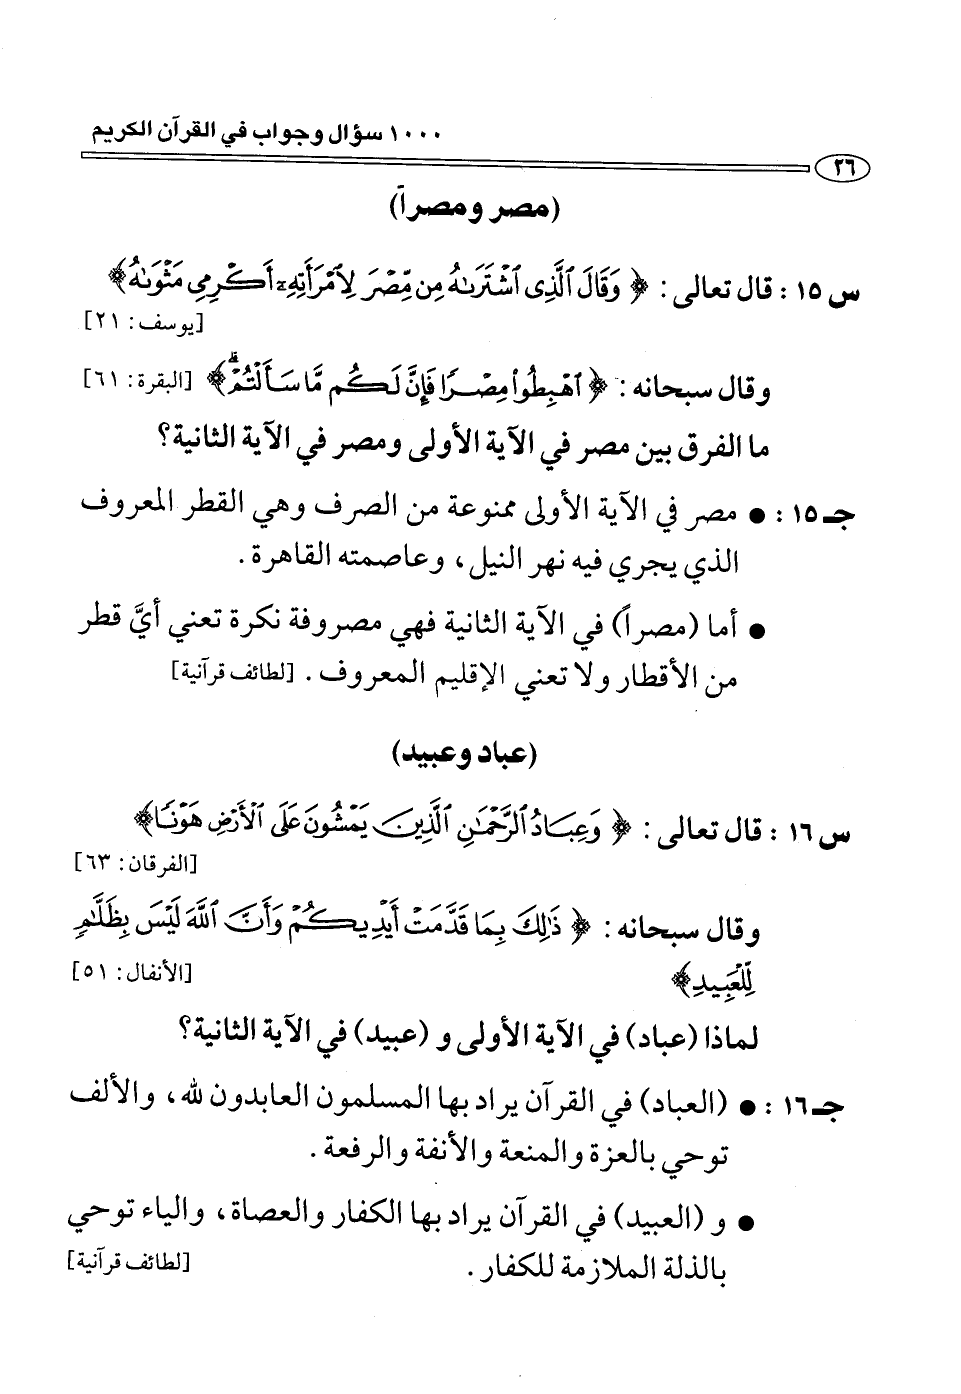 ١٠٠٠ سؤال وجواب في القرآن الكريم
٢٦
(مصر ومصراً)
س ١٥ : قال تعالى : ﴿ وَقَالَ ٱلَّذِى ٱشْتَرَىٰهُ مِن مِّصْرَ لِٱمْرَأَتِهِۦٓ أَكْرِمِى مَثْوَىٰهُ ﴾
[يوسف : ٢١]
وقال سبحانه : ﴿ ٱهْبِطُوا۟ مِصْرًا فَإِنَّ لَكُم مَّا سَأَلْتُمْ ۗ ﴾ [البقرة : ٦١]
ما الفرق بين مصر في الآية الأولى ومصر في الآية الثانية؟
جـ ١٥ : ● مصر في الآية الأولى ممنوعة من الصرف وهي القطر المعروف
الذي يجري فيه نهر النيل ، وعاصمته القاهرة .
● أما (مصراً) في الآية الثانية فهي مصروفة نكرة تعني أيَّ قطر
من الأقطار ولا تعني الإقليم المعروف . [لطائف قرآنية]
(عباد وعبيد)
س ١٦ : قال تعالى : ﴿ وَعِبَادُ ٱلرَّحْمَٰنِ ٱلَّذِينَ يَمْشُونَ عَلَى ٱلْأَرْضِ هَوْنًا ﴾
[الفرقان : ٦٣]
وقال سبحانه : ﴿ ذَٰلِكَ بِمَا قَدَّمَتْ أَيْدِيكُمْ وَأَنَّ ٱللَّهَ لَيْسَ بِظَلَّٰمٍ
لِّلْعَبِيدِ ﴾ [الأنفال : ٥١]
لماذا (عباد) في الآية الأولى و (عبيد) في الآية الثانية؟
جـ ١٦ : ● (العباد) في القرآن يراد بها المسلمون العابدون لله ، والألف
توحي بالعزة والمنعة والأنفة والرفعة .
● و (العبيد) في القرآن يراد بها الكفار والعصاة ، والياء توحي
بالذلة الملازمة للكفار . [لطائف قرآنية]